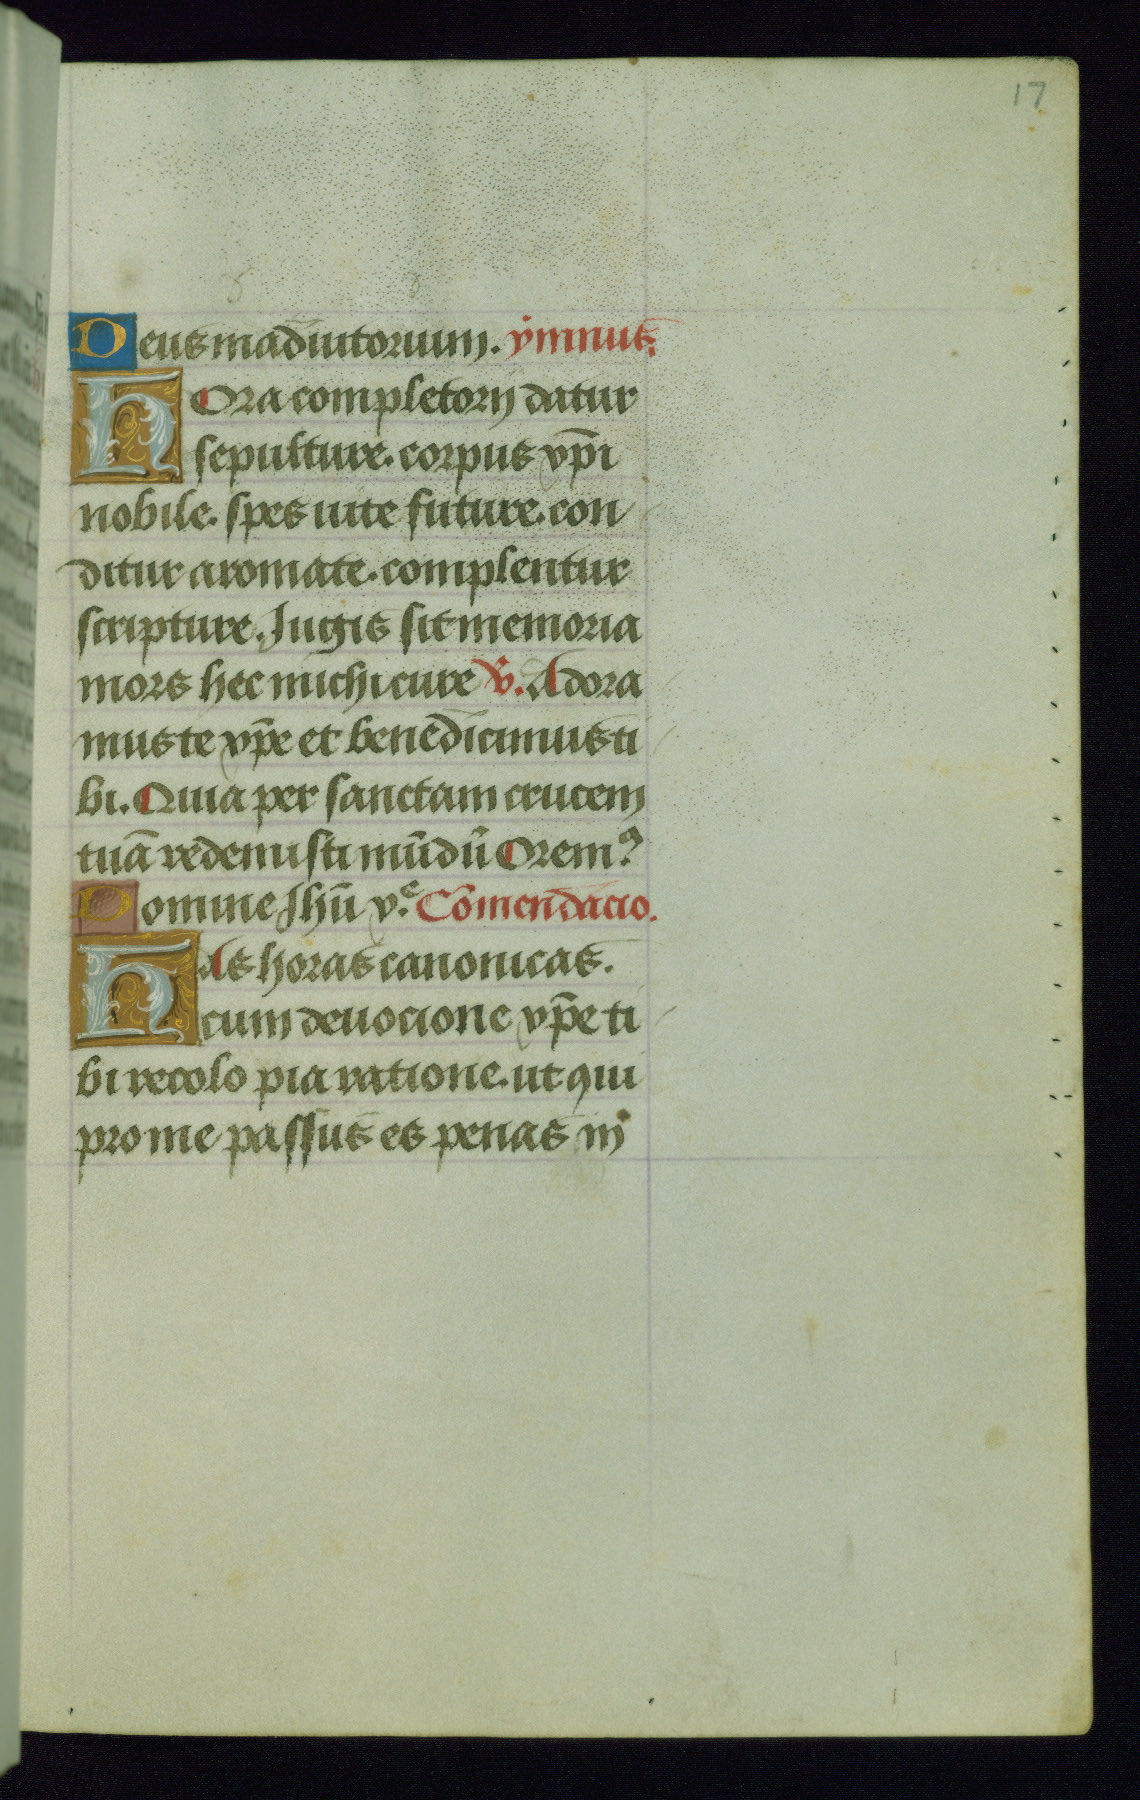 17
Deus in adiutorium. ymnus.
Hora completorij datur
sepulture. corpus xp̄i
nobile. spes uite future. con
ditur aromate. complentur
scripture. Jugis sit memoria
mors hec michi cure ℣. Adora
mus te xp̄e et benedicimus ti
bi. Quia per sanctam crucem
tuā redemisti mūdū Orem⁹
Domine Jhū x.e Cōmendacio.
Has horas canonicas.
cum deuocione xp̄e ti
bi recolo pia ratione. ut qui
pro me passus es penas in